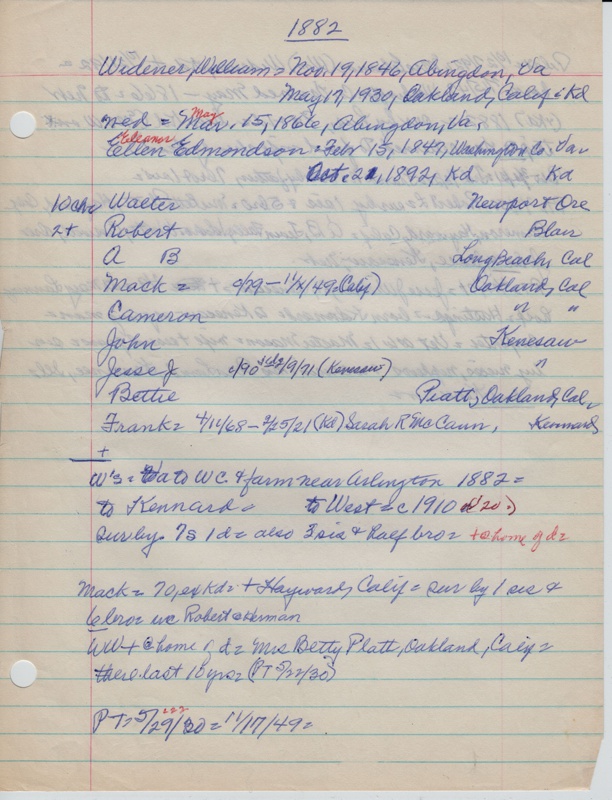 1882
Widener, William = Nov. 19, 1846, Abingdon, Va
May 17, 1930, Oakland, Calif = Kd
med = Mar. May 15, 1866, Abingdon, Va,
Eleanor
Ellen Edmondson = Feb 15, 1847, Washington Co., Va
Oct. 22, 1892, Kd Kd
10 ch = Walter Newport Ore
2 + Robert Blair
A B Long Beach, Cal
Mack = c/79 - 11/ /49 = (Calif) Oakland, Cal
Cameron " "
John Kenesaw
Jesse J c/90 /9/71 (Kenesaw) "
Bettie Platt, Oakland, Cal,
Frank = 4/11/68 - 2/25/21 (Kd) Sarah R McCann, Kennard
+
W's = Va to WC & farm near Arlington 1882 =
to Kennard = to West = c 1910 or '20 =)
sur by 7s 1d = also 3 sis & half bro = + @ home of d =
Mack = 70, ex Kd = + Hayward, Calif = sur by 1 sis &
6 bro = inc Robert & Herman
WW + @ home of d = Mrs Betty Platt, Oakland, Calif =
there last 10 yrs = (PT 5/22/30)
PT = 5/29/30 = 11/17/49 =